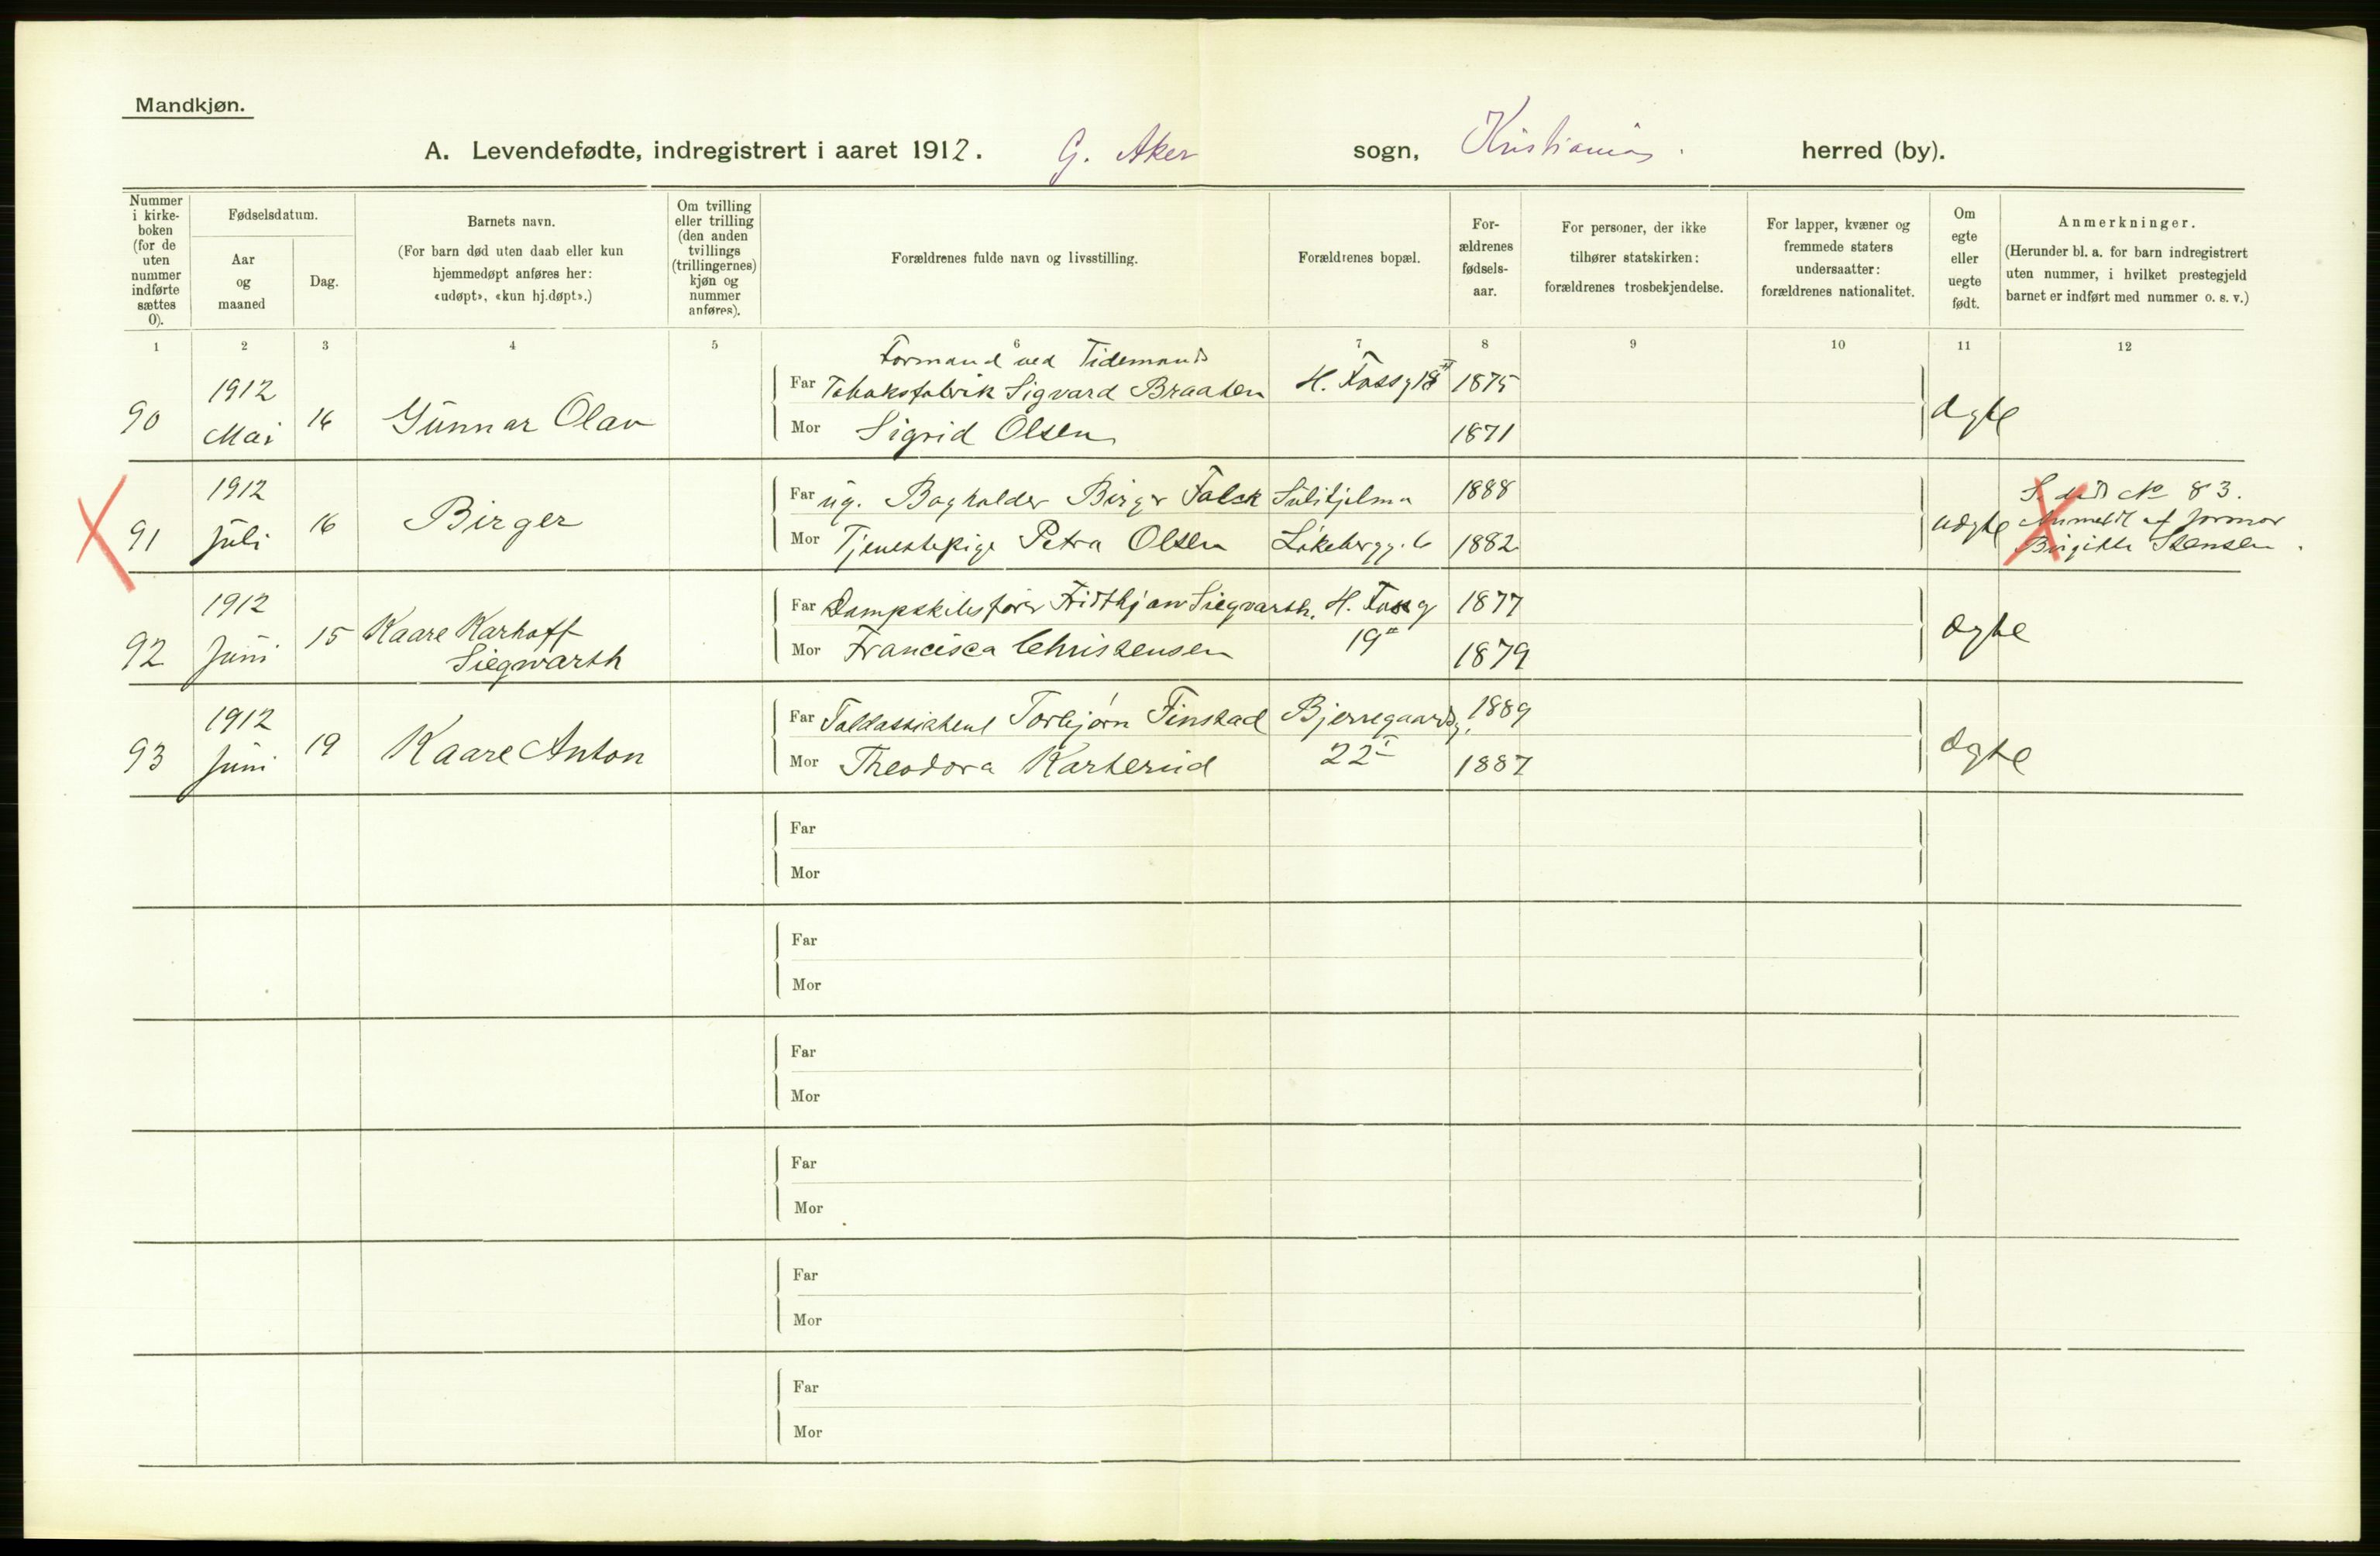 Mandkjøn.
A. Levendefødte, indregistrert i aaret 1912. G. Aker sogn, Kristiania. herred (by).
Nummer i kirke-boken (for de uten nummer indførte sættes 0).
Fødselsdatum.
Aar og maaned
Dag.
Barnets navn.
(For barn død uten daab eller kun hjemmedøpt anføres her: «udøpt», «kun hj.døpt».)
Om tvilling eller trilling (den anden tvillings (trillingernes) kjøn og nummer anføres).
Forældrenes fulde navn og livsstilling.
Forældrenes bopæl.
For-ældrenes fødsels-aar.
For personer, der ikke tilhører statskirken: forældrenes trosbekjendelse.
For lapper, kvæner og fremmede staters undersaatter: forældrenes nationalitet.
Om egte eller uegte født.
Anmerkninger.
(Herunder bl. a. for barn indregistrert uten nummer, i hvilket prestegjeld barnet er indført med nummer o. s. v.)
1 2 3 4 5 6 7 8 9 10 11 12
Formand ved Tidemands
90 1912 Mai 16 Gunnar Olav Far Tobaksfabrik Sigvard Braaten H. Fossg 18 II 1875 ægte
Mor Sigrid Olsen 1871
91 1912 Juli 16 Birger Far ug. Bogholder Birger Falck Sulitjelma 1888 uægte S. død No 83.
Mor Tjenestepige Petra Olsen Løkebergg. 6 1882 Anmeldt af formor
Birgitte Stensen.
92 1912 Juni 15 Kaare Karhoff Far Dampskibsfører Fridthjow Siegwarth. H. Fossg 1877 ægte
Siegwarth Mor Francisca Christensen 19 II 1879
93 1912 Juni 19 Kaare Anton Far Toldassistent Torbjørn Finstad Bjerregaardsg. 1889 ægte
Mor Theodora Karterud 22 I 1887
Far
Mor
Far
Mor
Far
Mor
Far
Mor
Far
Mor
Far
Mor